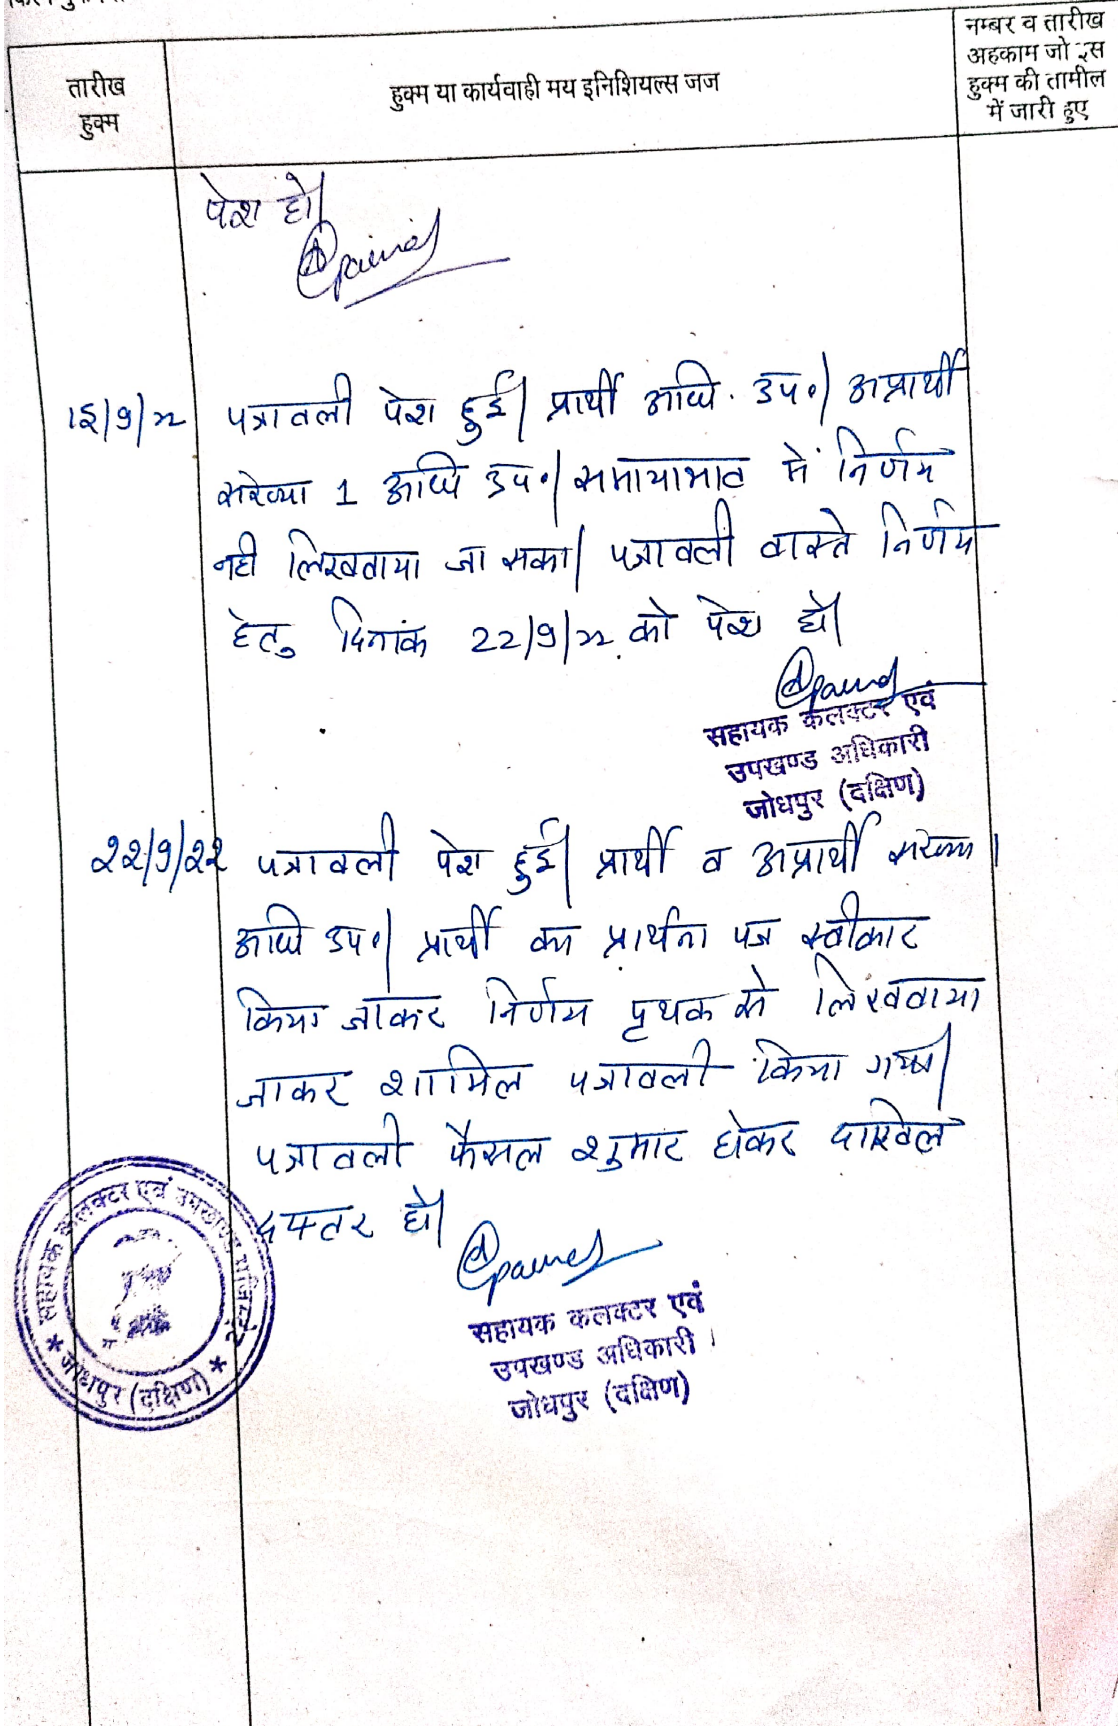 तारीख
हुक्म
हुक्म या कार्यवाही मय इनिशियल्स जज
नम्बर व तारीख
अहकाम जो इस
हुक्म की तामील
में जारी हुए
पेश हो|
पत्रावली पेश हुई| प्रार्थी अधि. उप०| अप्रार्थी
संख्या 1 अधि उप०| समयाभाव में निर्णय
नही लिखवाया जा सका| पत्रावली वास्ते निर्णय
हेतु दिनांक 22/9/22 को पेश हो|
सहायक कलक्टर एवं
उपखण्ड अधिकारी
जोधपुर (दक्षिण)
22/9/22 पत्रावली पेश हुई| प्रार्थी व अप्रार्थी संख्या 1
अधि उप०| प्रार्थी का प्रार्थना पत्र स्वीकार
किया जाकर निर्णय पृथक से लिखवाया
जाकर शामिल पत्रावली किया गया|
पत्रावली फैसल शुमार होकर दाखिल
दफ्तर हो|
सहायक कलक्टर एवं
उपखण्ड अधिकारी
जोधपुर (दक्षिण)
सहायक कलक्टर एवं उपखण्ड
जोधपुर (दक्षिण)